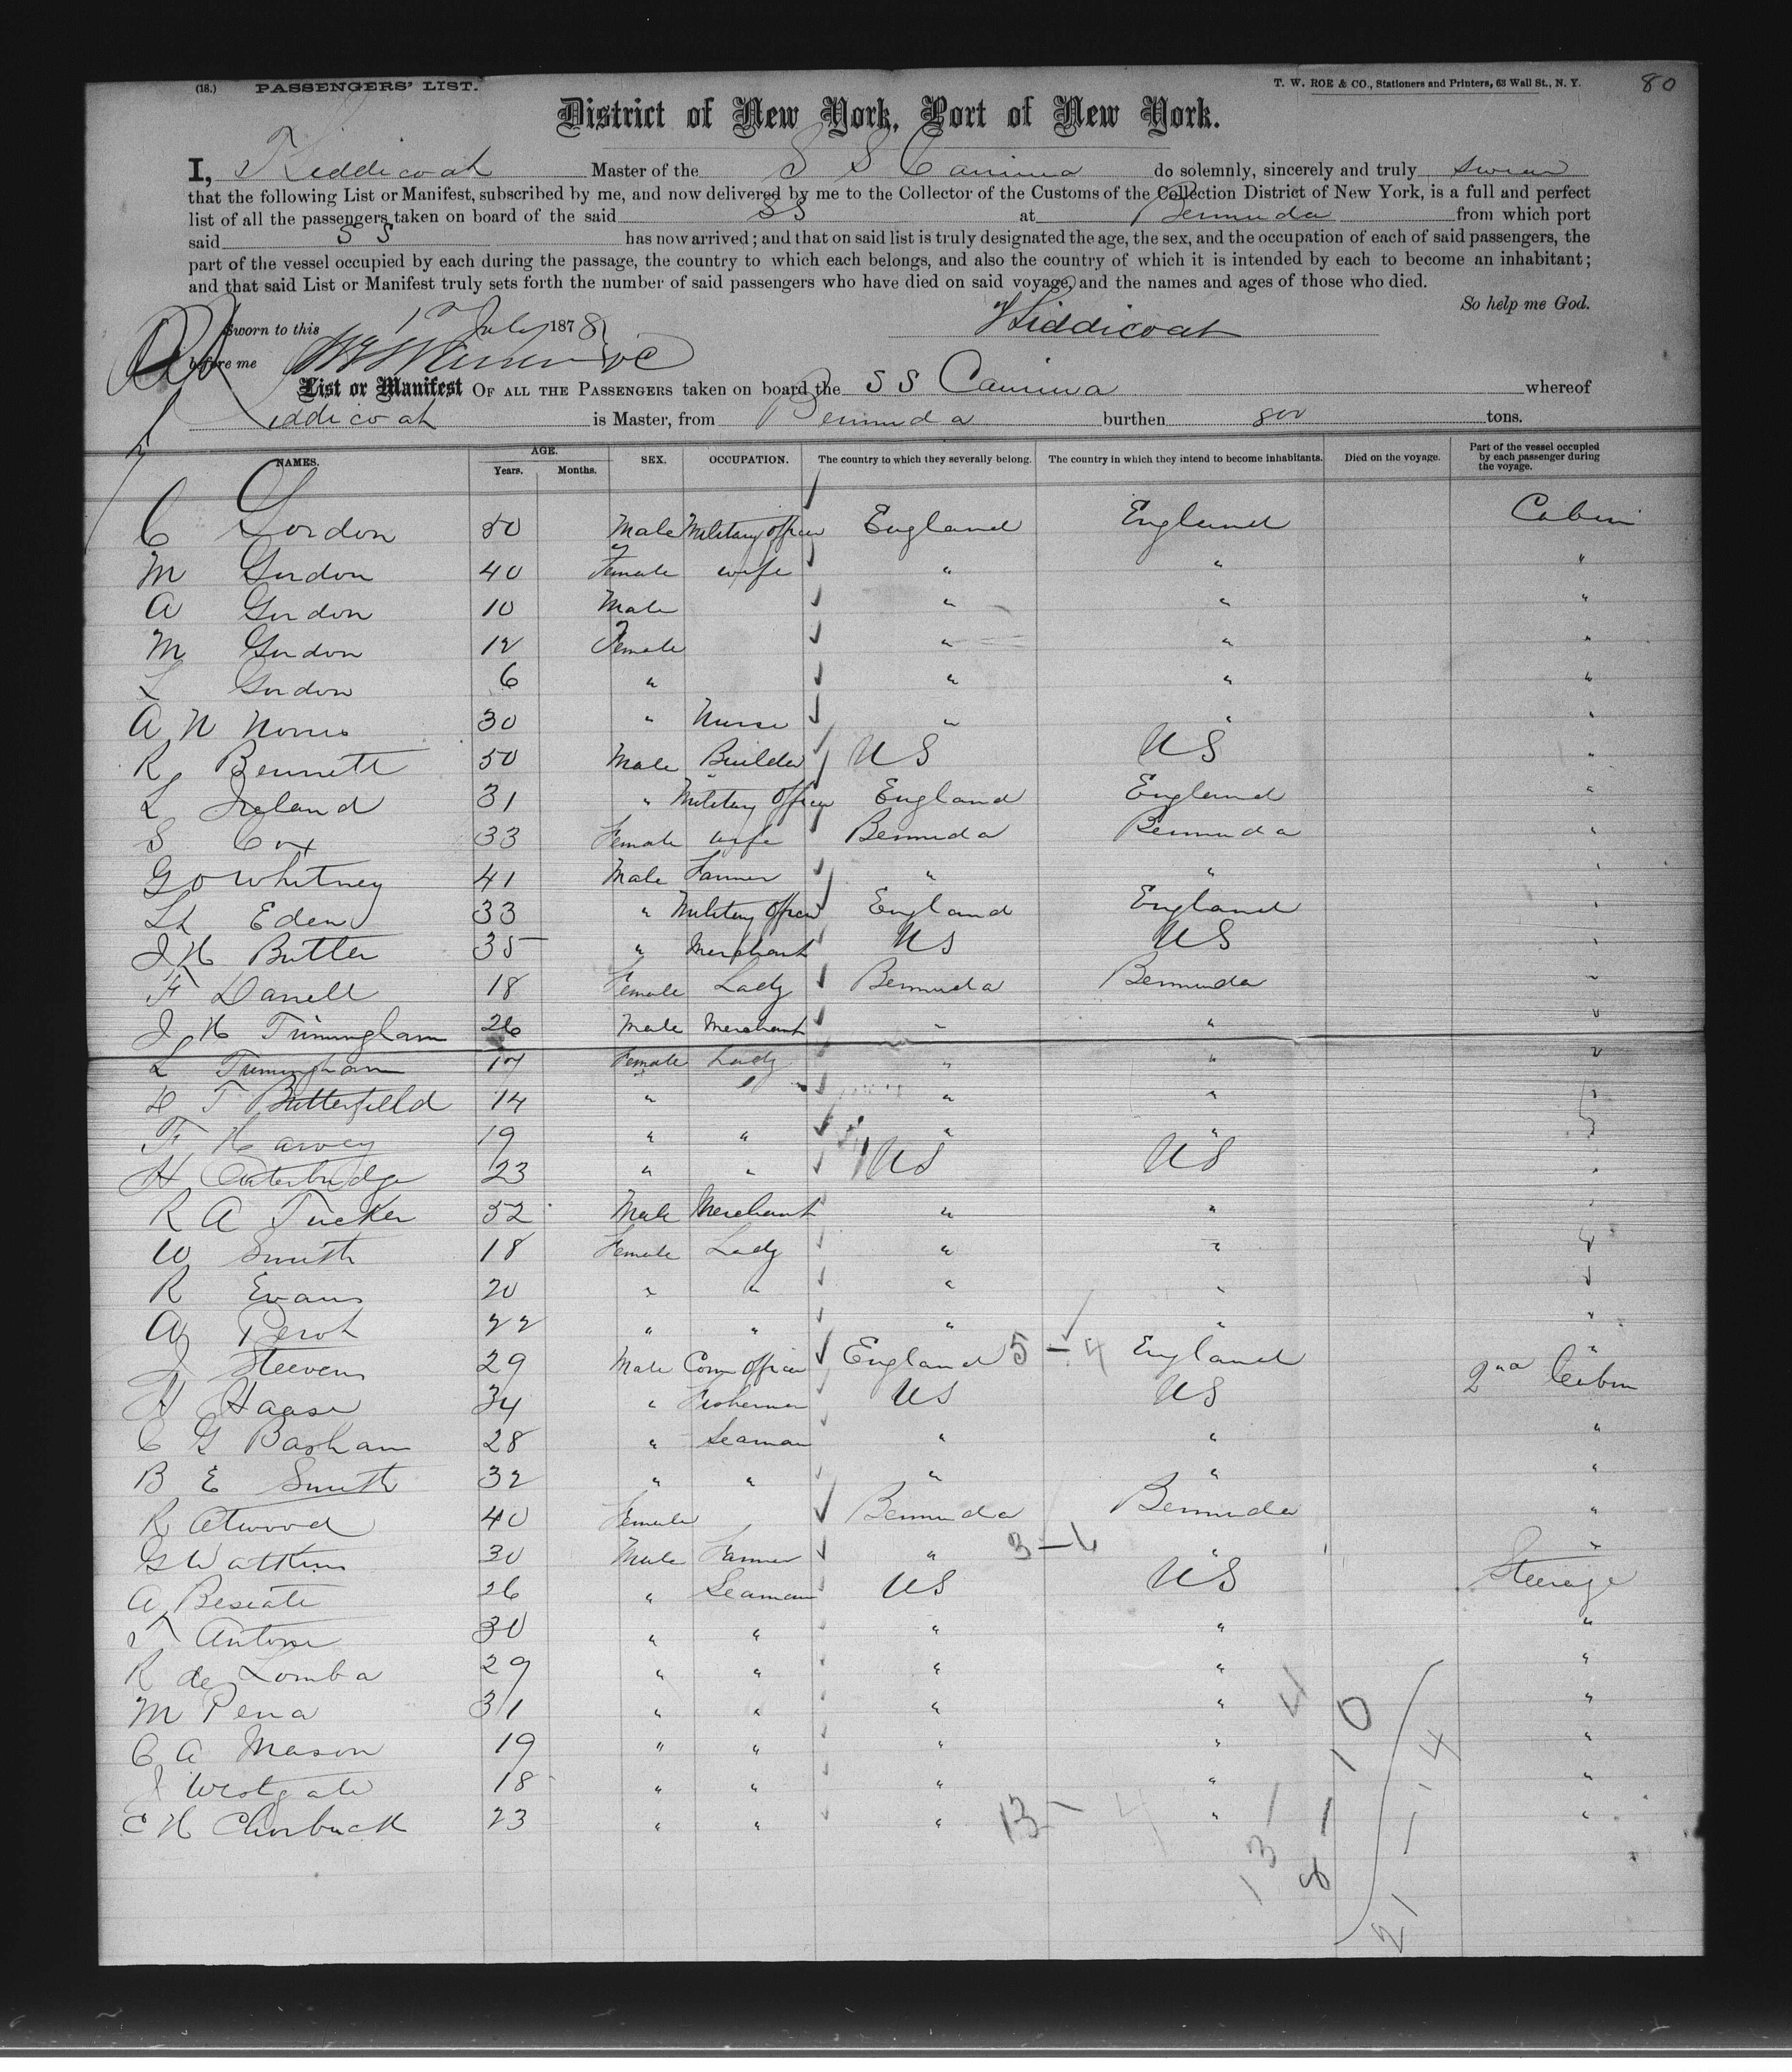 (18.) PASSENGERS' LIST. T. W. ROE & CO., Stationers and Printers, 63 Wall St., N. Y. 80
District of New York, Port of New York.
I, Liddicoat Master of the S S Canima do solemnly, sincerely and truly swear
that the following List or Manifest, subscribed by me, and now delivered by me to the Collector of the Customs of the Collection District of New York, is a full and perfect
list of all the passengers taken on board of the said SS at Bermuda from which port
said SS has now arrived; and that on said list is truly designated the age, the sex, and the occupation of each of said passengers, the
part of the vessel occupied by each during the passage, the country to which each belongs, and also the country of which it is intended by each to become an inhabitant;
and that said List or Manifest truly sets forth the number of said passengers who have died on said voyage, and the names and ages of those who died.
So help me God.
Sworn to this 1st July 1878 Liddicoat
before me
List or Manifest OF ALL THE PASSENGERS taken on board the SS Canima whereof
Liddicoat is Master, from Bermuda burthen 800 tons.
NAMES. AGE. Years. Months. SEX. OCCUPATION. The country to which they severally belong. The country in which they intend to become inhabitants. Died on the voyage. Part of the vessel occupied by each passenger during the voyage.
C Gordon 50 Male Military officer England England Cabin
M Gordon 40 Female wife " " "
A Gordon 10 Male " " "
M Gordon 12 Female " " "
L Gordon 6 " " " "
A N Norris 30 " Nurse " " "
R Bennett 50 Male Builder US US "
L Ireland 31 " Military Officer England England "
S Cox 33 Female wife Bermuda Bermuda "
G O Whitney 41 Male Farmer " " "
Lt Eden 33 " Military Officer England England "
J H Butler 35 " Merchant US US "
F Darrell 18 Female Lady Bermuda Bermuda "
J H Trimingham 26 Male Merchant " " "
L Trimingham 17 Female Lady " " "
D T Butterfield 14 " " " " "
F Harvey 19 " " " " "
H Outerbridge 23 " " US US "
R A Tucker 52 Male Merchant " " "
W Smith 18 Female Lady " " "
R Evans 20 " " " " "
A Perot 22 " " " " "
J Steevens 29 Male Com Officer England 5 - 4 England "
H Haase 34 " Fisherman US US 2nd Cabin
C G Basham 28 " Seaman " " "
B E Smith 32 " " " " "
R Atwood 40 Female Bermuda Bermuda "
G Watkins 30 Male Farmer " 3 - 6 " "
A Beseate 26 " Seaman US US Steerage
T Antone 30 " " " " "
R de Lomba 29 " " " " "
M Pena 31 " " " " "
C A Mason 19 " " " " "
J Westgate 18 " " " " "
C H Churbuck 23 " " " 13 - 4 " "
13 - 4
8 - 10
21 - 14